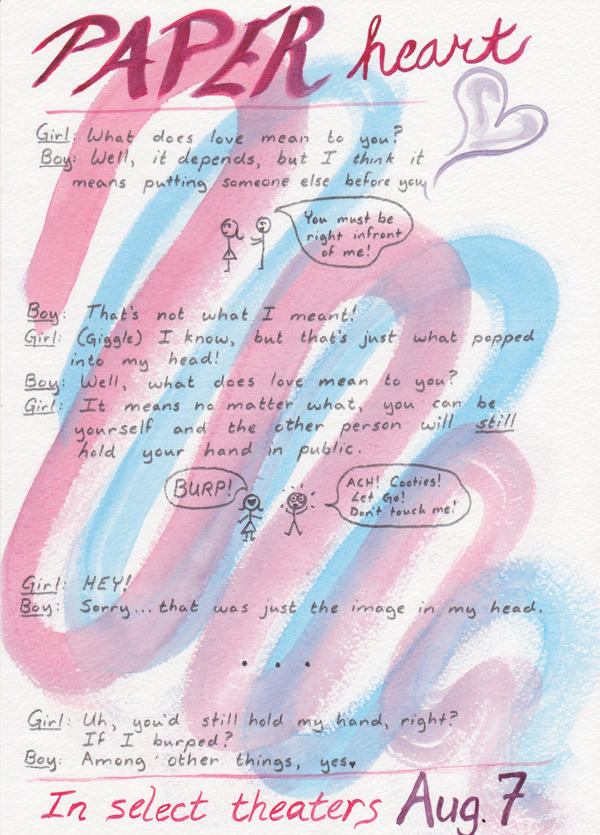 PAPER heart
Girl: What does love mean to you?
Boy: Well, it depends, but I think it
means putting someone else before you
You must be
right infront
of me!
Boy: That's not what I meant!
Girl: (Giggle) I know, but that's just what popped
into my head!
Boy: Well, what does love mean to you?
Girl: It means no matter what, you can be
yourself and the other person will still
hold your hand in public.
BURP!
ACH! Cooties!
Let Go!
Don't touch me!
Girl: HEY!
Boy: Sorry... that was just the image in my head.
. . .
Girl: Uh, you'd still hold my hand, right?
If I burped?
Boy: Among other things, yes♥
In select theaters Aug. 7